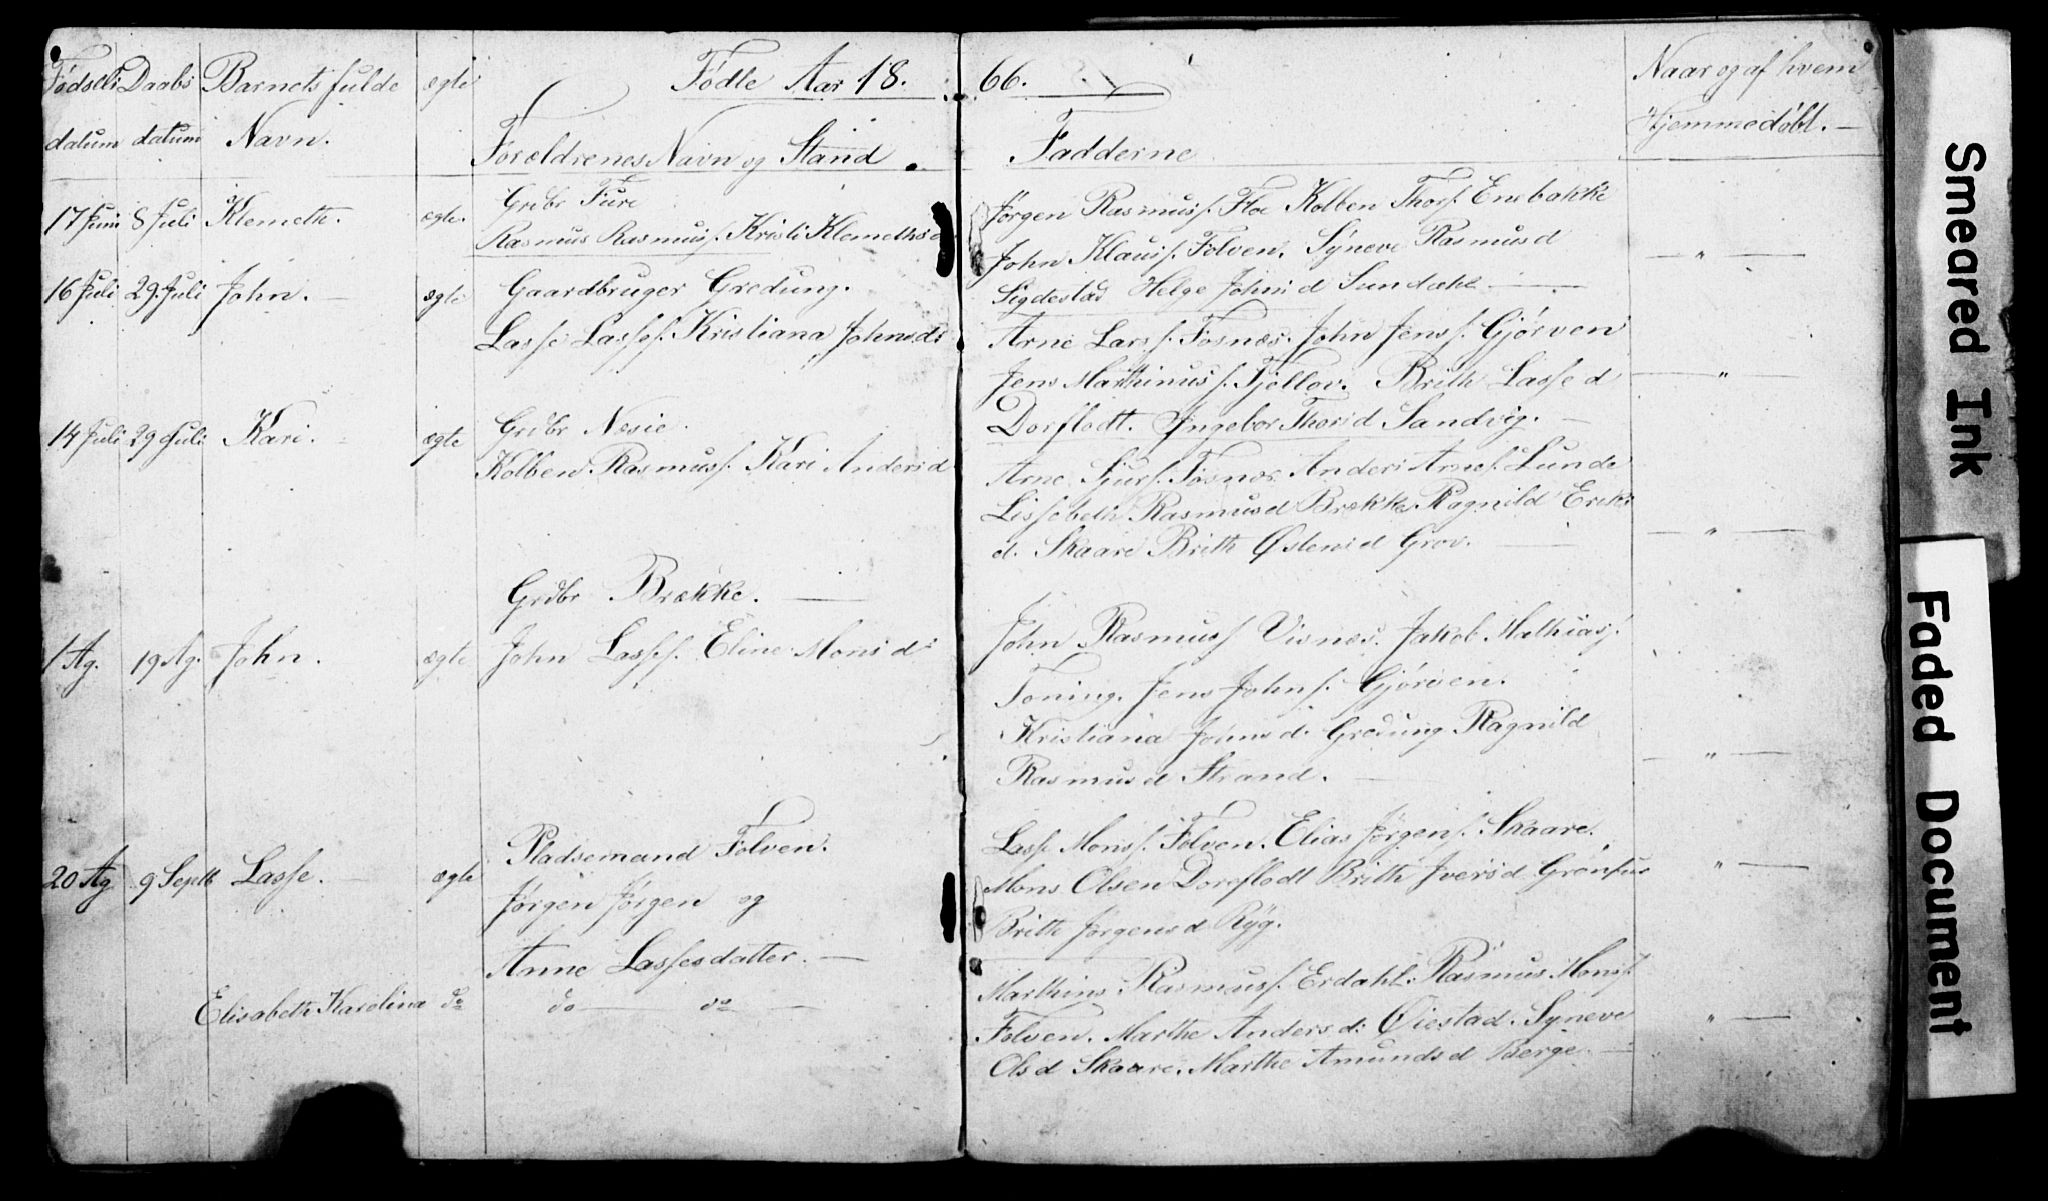 Fødte Aar 18. 66.
Fødsels Daabs Barnets fulde ægte
datum datum Navn. Forældrenes Navn og Stand Fadderne
Naar og af hvem
Hjemmedøbt.
17 Juni 8 Juli Klemeth. ægte. Grdbr Fure
Rasmus Rasmuss. Kristi Klemethsd
Jørgen Rasmuss. Floe Kolben Thors. Enebakke
John Klauss. Folven. Syneve Rasmusd
Sigdestad Helge Johnsd Sundahl — " —
16 Juli 29. Juli John. — ægte Gaardbruger Gredung.
Lasse Lasses. Kristiana Johnsd:
Arne Larss. Tosnæs. John Jenss. Gjørven
Jens Marthinuss. Tjellov. Brith Lassed — " —
Dorflodt. Ingebor Thorsd Sandvig. —
14 Juli 29 Juli Kari. ægte Grdbr Nesie.
Kolben Rasmuss. Kari Andersd
Arne Sjurs. Tosnæs Anders Arnes. Lunde
Lissebeth Rasmusd Brække Ragnild Eriks
d. Skaare Brith Østensd Grov. — " —
1 Ag. 19 Ag. John. ægte Grdbr Brække. —
John Lasses. Eline Monsd:
John Rasmuss. Visnæs. Jakob Mathiass.
Toning. Jens Johns. Gjørven.
Kristiana Johnsd. Gredung Ragnild
Rasmusd Strand. — " —
20 Ag 9 Septb Lasse. — ægte Pladsemand Folven.
Jørgen Jørgen og
Anne Lassesdatter. —
Lasse Monss. Folven. Elias Jørgens. Skaare.
Mons Olsen Dorflodt Brith Iversd Grønfur — " —
Brithe Jørgensd Ryg.
Elisabeth Karolina do do — do —
Marthins Rasmuss. Erdahl. Rasmus Monss.
Folven. Marthe Andersd: Øiestad. Syneve — " —
Olsd Skaare. Marthe Amundsd Berge. —
Smeared Ink
Faded Document